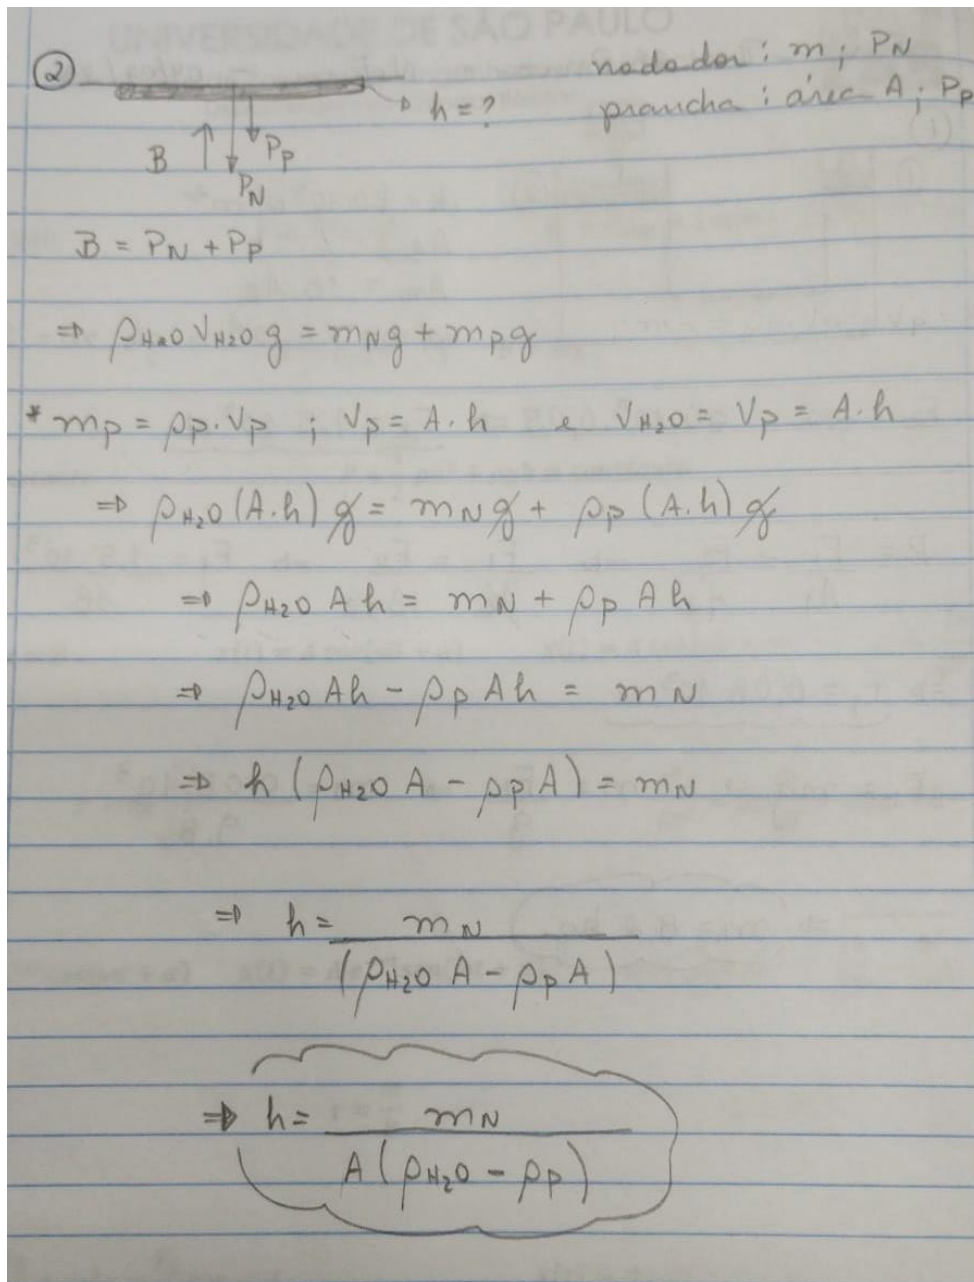 UNIVERSIDADE DE SÃO PAULO
② nadador: m; PN
h = ? prancha: área A; Pp
B Pp
PN
B = PN + Pp
⇒ ρH2O VH2O g = mN g + mP g
* mp = ρp . Vp ; Vp = A . h e VH2O = Vp = A . h
⇒ ρH2O (A.h) g = mN g + ρp (A.h) g
⇒ ρH2O A h = mN + ρp A h
⇒ ρH2O A h - ρp A h = mN
⇒ h (ρH2O A - ρp A) = mN
⇒ h = mN / (ρH2O A - ρp A)
⇒ h = mN / A (ρH2O - ρp)